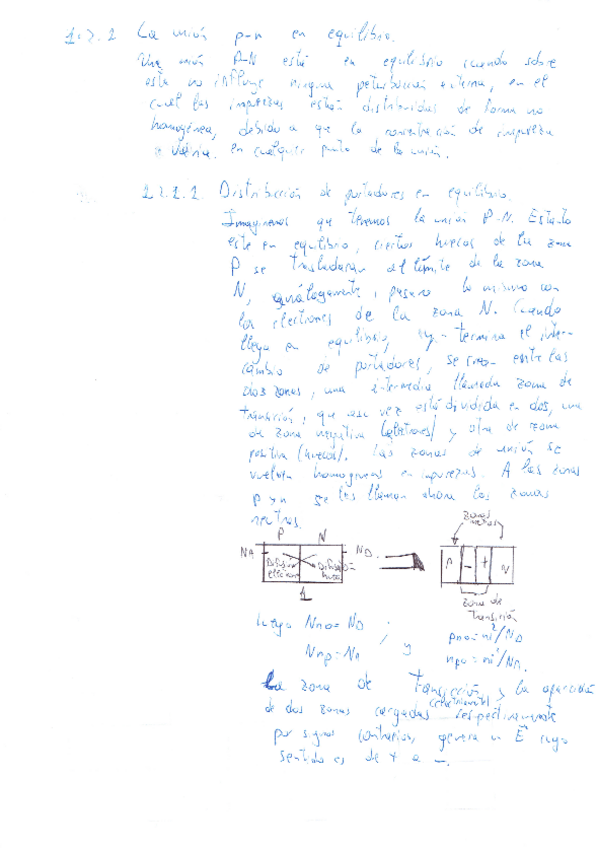 1.2.2 La unión p-n en equilibrio.
Una unión P-N está en equilibrio cuando sobre
esta no influye ninguna perturbación externa, en el
cual las impurezas están distribuidas de forma no
homogénea, debido a que la concentración de impureza
varía en cualquier punto de la unión.
1.2.2.1. Distribución de portadores en equilibrio.
Imaginemos que tenemos la unión P-N. Esta
este en equilibrio, ciertos huecos de la zona
P se trasladaran al límite de la zona
N, análogamente, pasará lo mismo con
los electrones de la zona N. Cuando
llega en equilibrio, y termina el inter-
cambio de portadores, se crean entre las
dos zonas, una intermedia llamada zona de
transición, que a su vez está dividida en dos, una
de zona negativa (electrones) y otra de zona
positiva (huecos). Las zonas de unión se
vuelven homogéneas en impurezas. A las zonas
p y n se les llaman ahora las zonas
neutras.
zonas
neutras
P N
NA ND
Difusión Difusión
electrones huecos
P - + N
1
zona de
transición
Luego Nno=ND ; pno=ni²/ND
y
Npp=NA npo=ni²/NA.
La zona de transición, y la aparición
de dos zonas cargadas respectivamente
por signos contrarios, genera un E cuyo
sentido es de + a -.